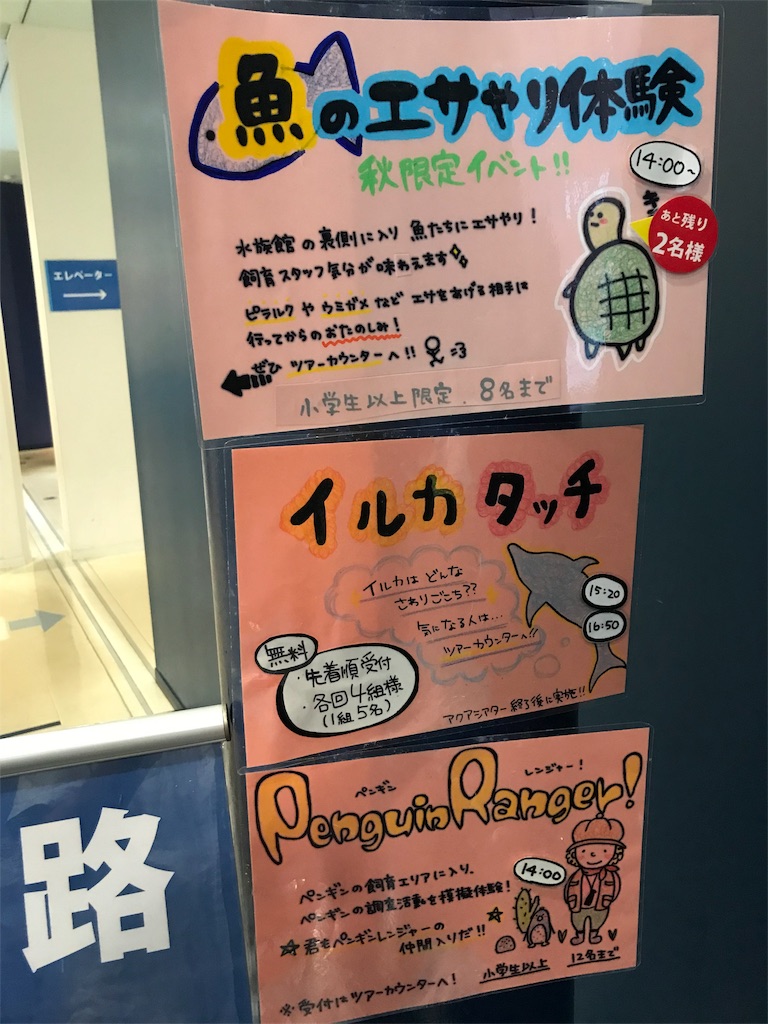 魚のエサやり体験
秋限定イベント!!
14:00~
あと残り
2名様
水族館の裏側に入り 魚たちにエサやり!
飼育スタッフ気分が味わえます
ピラルク や ウミガメ など エサをあげる相手は
行ってからのおたのしみ!
ぜひ ツアーカウンターへ!!
小学生以上限定. 8名まで
エレベーター
→
イルカ タッチ
イルカは どんな
さわりごこち??
気になる人は...
ツアーカウンターへ!!
15:20
16:50
無料
・先着順受付
・各回4組様
(1組5名)
アクアシアター終了後に実施!!
ペンギン レンジャー!
Penguin Ranger!
14:00
ペンギンの飼育エリアに入り、
ペンギンの調査活動を模擬体験!
☆君もペンギンレンジャーの
仲間入りだ!!☆
小学生以上 12名まで
※受付はツアーカウンターへ!
路